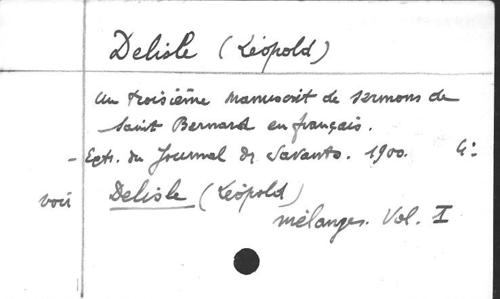 Delisle (Léopold)
Un troisième manuscrit de sermons de
Saint Bernard en français.
- Extr. du Journal des Savants. 1900. 4º
voir Delisle (Léopold)
mélanges. Vol. I